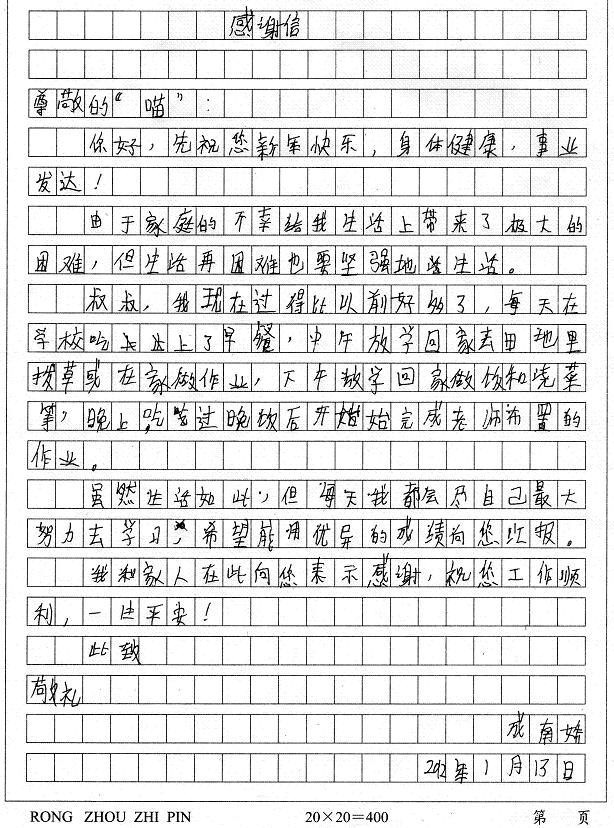 感谢信
尊敬的“喵”：
你好，先祝您新年快乐，身体健康，事业
发达！
由于家庭的不幸给我生活上带来了极大的
困难，但生活再困难也要坚强地活生活。
叔叔，我现在过得比以前好多了，每天在
学校吃上早餐，中午放学回家去田地里
拔草或在家做作业，下午放学回家做饭和烧菜
等，晚上，吃过晚饭后开始完成老师布置的
作业。
虽然生活如此，但每天我都会尽自己最大
努力去学习，希望能用优异的成绩向您汇报。
我和家人在此向您表示感谢，祝您工作顺
利，一生平安！
此致
敬礼
成南
2012年1月13日
RONG ZHOU ZHI PIN 20×20=400 第 页